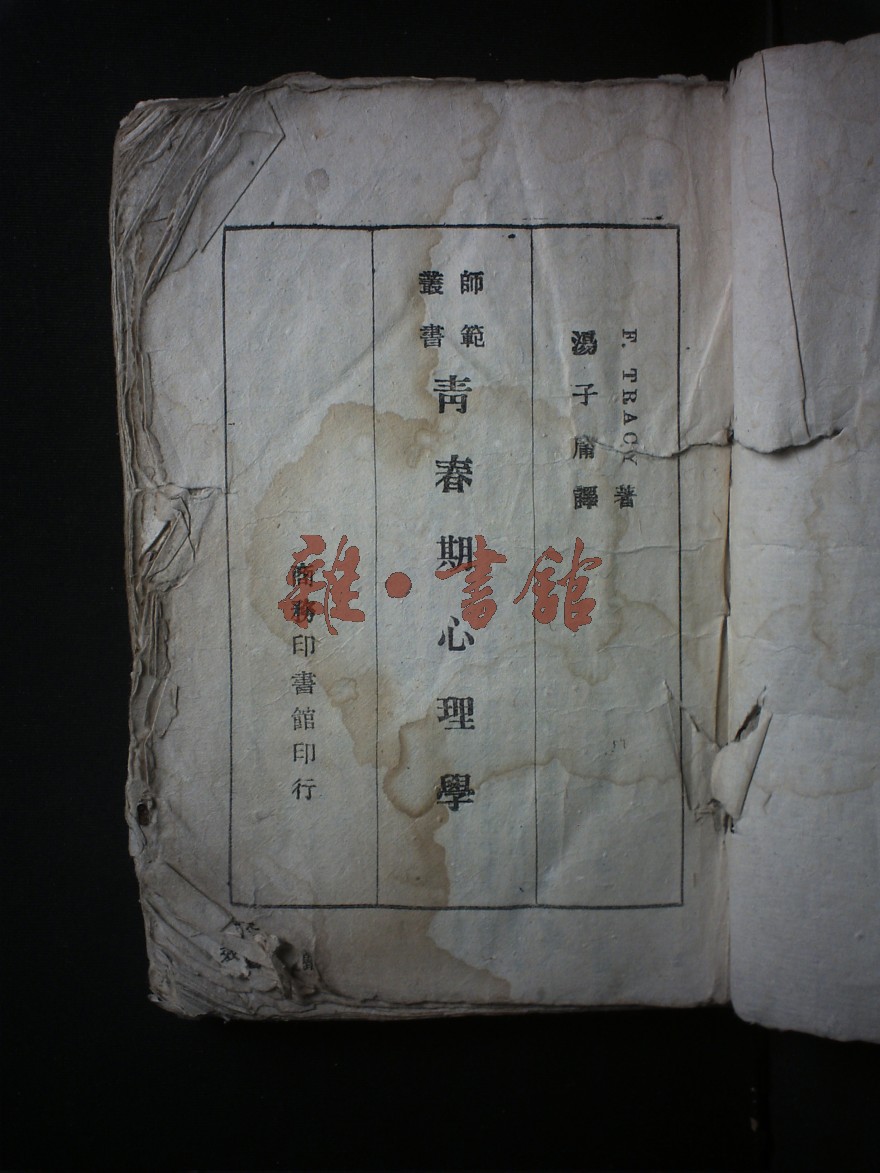 F. TRACY 著
湯子庸譯
師範
叢書
青春期心理學
商務印書館印行
雜·書館